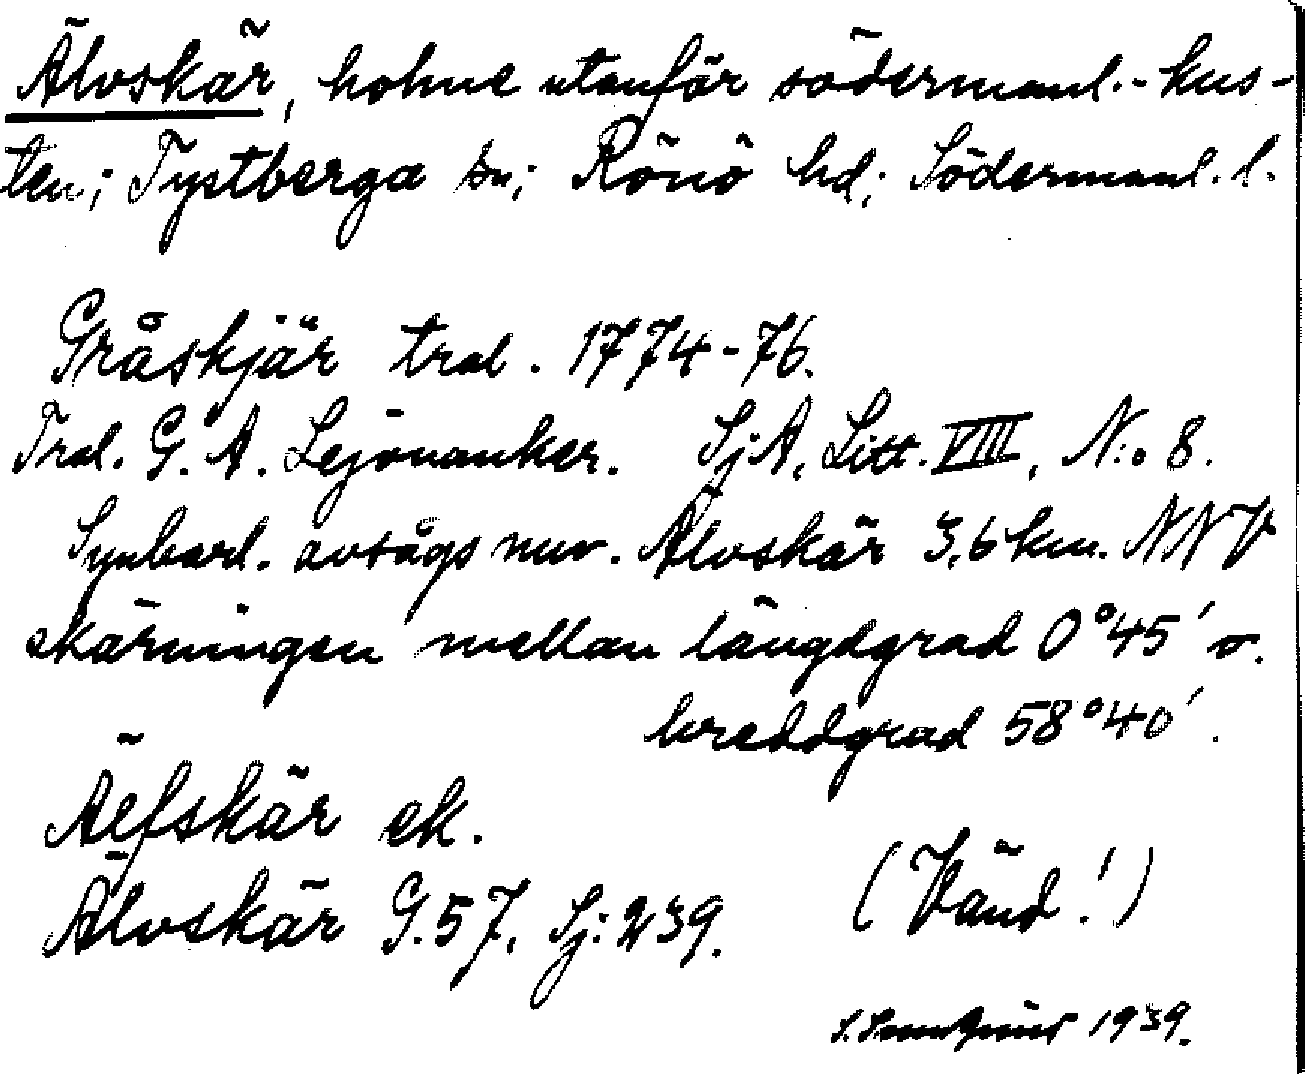 Älvskär, holme utanför södermanl.-kus-
ten; Tystberga sn; Rönö hd; Södermanl. l.
Gråskjär tral. 1774-76.
Tral. G. A. Lejonanker. Sj.A, Litt. VIII, N:o 8.
Synbarl. avsågs nuv. Älvskär 3,6 km. NNV
skärningen mellan längdgrad 0°45' o.
breddgrad 58°40'.
Älfskär ek.
Älvskär G.57, Sj: 239.
(Vänd!)
1939.